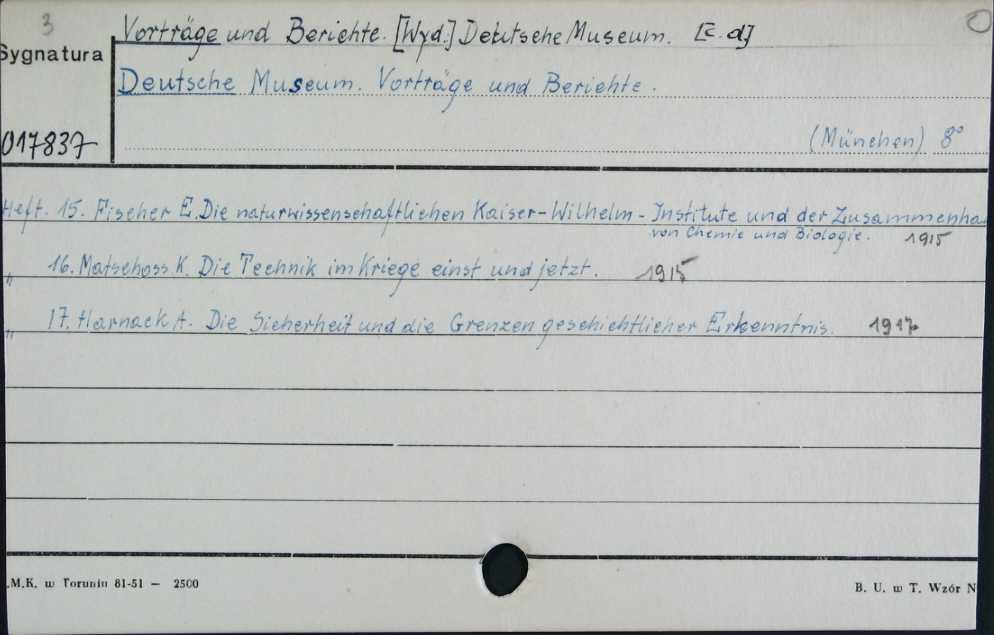 3
Vorträge und Berichte. [Wyd.] Deutsche Museum. [c.d]
Sygnatura
Deutsche Museum. Vorträge und Berichte.
017837
(München) 8°
Heft. 15. Fischer E. Die naturwissenschaftlichen Kaiser-Wilhelm-Institute und der Zusammenha
von Chemie und Biologie. 1915
" 16. Matschoss K. Die Technik im Kriege einst und jetzt. 1915
" 17. Harnack A. Die Sicherheit und die Grenzen geschichtlicher Erkenntnis. 1917
.M.K. w Toruniu 81-51 — 2500
B. U. w T. Wzór N